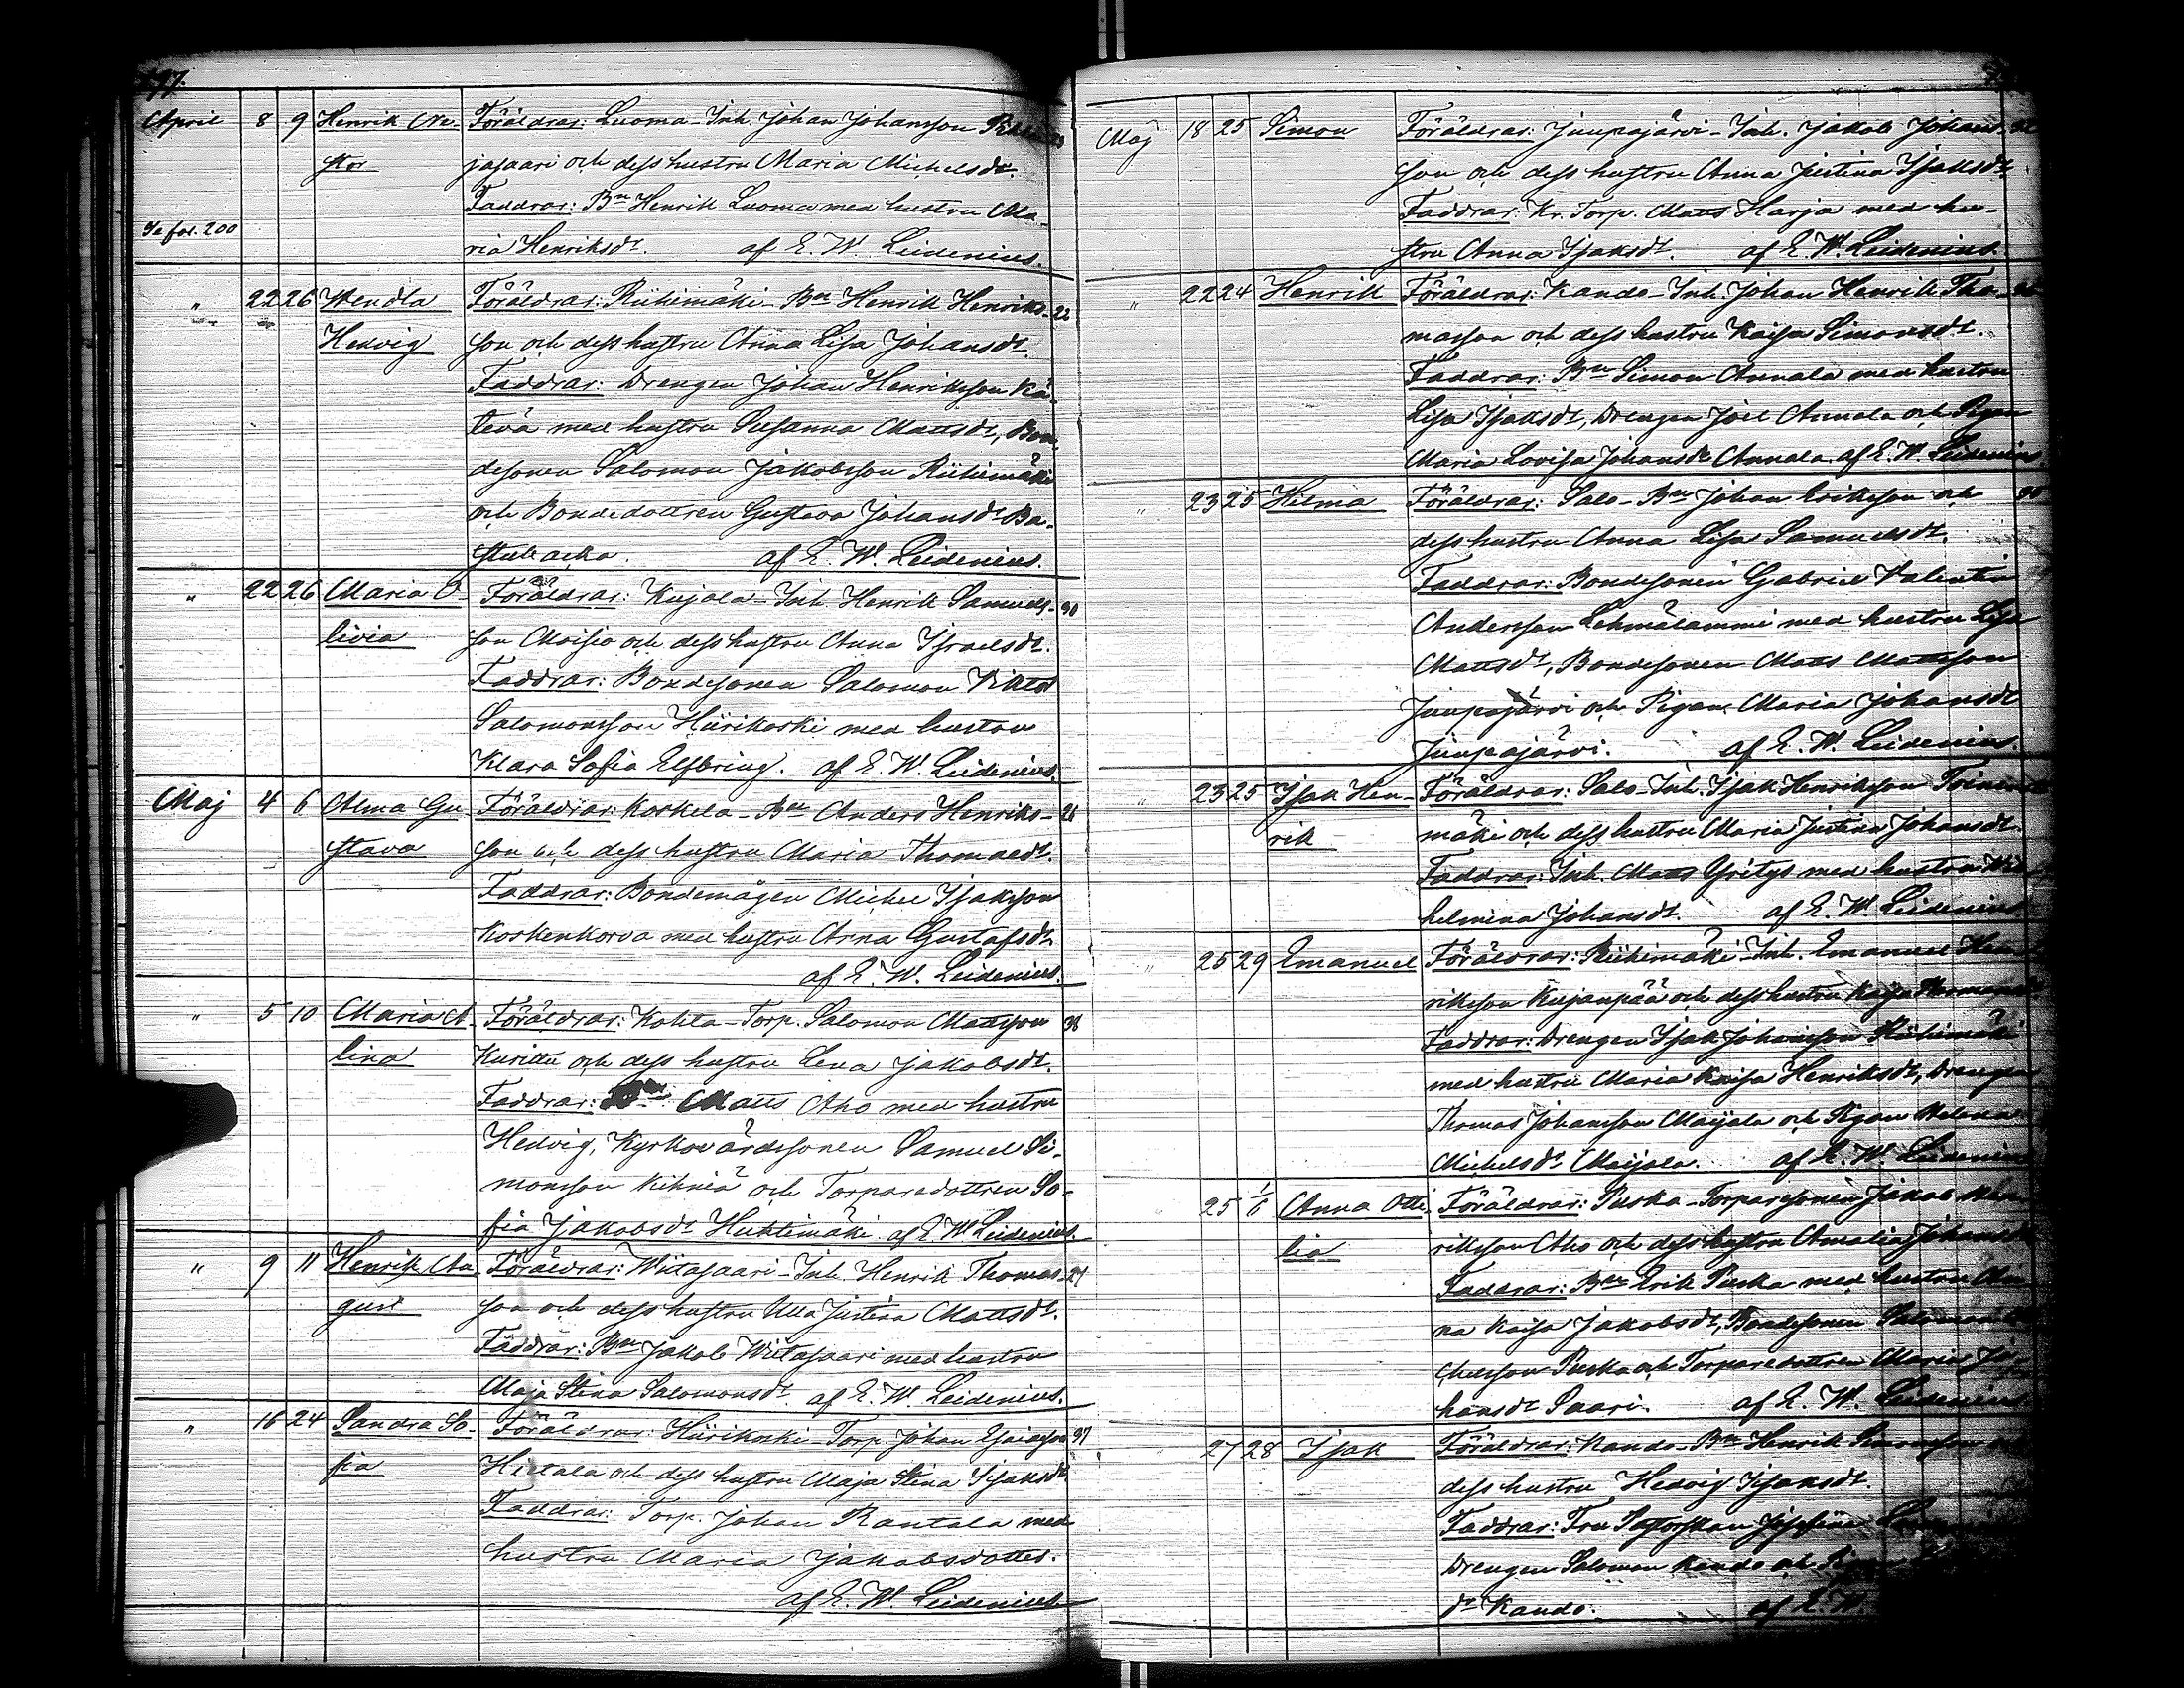 197.
April 8 9 Henrik Ne- Föräldrar: Luoma-Inh. Johan Johansson
stor jasaari och dess hustru Maria Michelsdr.
Faddrar: Bn Henrik Luoma med hustru Ma-
Se fol. 200
ria Henriksdr. af E. W. Leidenius.
" 22 26 Wendla Föräldrar: Riihimäki-Bn Henrik Henriks- 22
Hedvig son och dess hustru Anna Lisa Johansdr.
Faddrar: Drengen Johan Henriksson Kä-
tevä med hustru Susanna Mattsdr, Bon-
desonen Salomon Jakobsson Riihimäki
och Bondedottren Gustava Johansdr Ba-
stubacka. af E. W. Leidenius.
" 22 26 Maria O- Föräldrar: Kujala-Inh. Henrik Samuels- 30
livia son Moisio och dess hustru Anna Israelsdr.
Faddrar: Bondesonen Salomon Viktor
Salomonsson Hiirikoski med hustru
Klara Sofia Elfbring. af E. W. Leidenius.
Maj 4 6 Alma Gu- Föräldrar: Korkela-Bn Anders Henriks-
stava son och dess hustru Maria Thomasdr.
Faddrar: Bondemågen Michel Isaksson
Koskenkorva med hustru Anna Gustafsdr
af E. W. Leidenius.
" 5 10 Maria A- Föräldrar: Kohta-Torp. Salomon Mattsson 38
lina Kuritta och dess hustru Lena Jakobsdr.
Faddrar: Bn Matts Aho med hustru
Hedvig, Kyrkovärdssonen Samuel Si-
monsson Kihniä och Torparedottren So-
fia Jakobsdr Huhtimäki af E. W. Leidenius.
" 9 11 Henrik Au- Föräldrar: Wiitasaari-Inh. Henrik Thomas-
gust son och dess hustru Ulla Justina Mattsdr.
Faddrar: Bn Jakob Wiitasaari med hustru
Maja Stina Salomonsdr. af E. W. Leidenius.
" 16 24 Sandra So- Föräldrar: Hiirikoski-Torp. Johan Esaiasson 37
fia Hietala och dess hustru Maja Stina Isaksdr
Faddrar: Torp. Johan Rantala med
hustru Maria Jakobsdotter.
af E. W. Leidenius
Maj 18 25 Simon Föräldrar: Juupajärvi-Inh. Jakob Johans-
son och dess hustru Anna Justina Isaksdr
Faddrar: Kr. Torp. Matts Harja med hu-
stru Anna Isaksdr. af E. W. Leidenius.
" 22 24 Henrik Föräldrar: Kando-Inh. Johan Henrik Tho-
masson och dess hustru Kaisa Simonsdr.
Faddrar: Bn Simon Annala med hustru
Lisa Isaksdr, Drengen Joel Annala och Pigan
Maria Lovisa Johansdr Annala af E. W. Leidenius
" 23 25 Hilma Föräldrar: Salo-Bn Johan Eriksson och
dess hustru Anna Lisa Samuelsdr.
Faddrar: Bondesonen Gabriel Valentin
Andersson Lehmälammi med hustru Lisa
Mattsdr, Bondesonen Matts Mattsson
Juupajärvi och Pigan Maria Johansdr
Juupajärvi. af E. W. Leidenius.
" 23 25 Isak Hen- Föräldrar: Salo-Inh. Isak Henriksson
rik mäki och dess hustru Maria Justina Johansdr.
Faddrar: Inh. Matts Yritys med hustru Wil-
helmina Johansdr. af E. W. Leidenius
" 25 29 Emanuel Föräldrar: Riihimäki-Inh. Emanuel Hen-
riksson Kujanpää och dess hustru Kaisa
Faddrar: Drengen Isak Johansson Riihimäki
med hustru Maria Kaisa Henriksdr, Drengen
Thomas Johansson Maijala och Pigan Helena
Michelsdr Maijala. af E. W. Leidenius
25 1/6 Anna Otti- Föräldrar: Puska-Torparesonen Jakob Hen-
lia riksson Aho och dess hustru Amalia Johansdr
Faddrar: Bn Erik Puska med hustru An-
na Kaisa Jakobsdr, Bondesonen Salomon
chelsson Puska och Torparedottren Maria Jo-
hansdr Saari. af E. W. Leidenius
27 28 Isak Föräldrar: Kando-Bn Henrik
dess hustru Hedvig Isaksdr.
Faddrar: Fru Pastorskan Josefina
Drengen Salomon Kando och
dr Kando. af E. W.